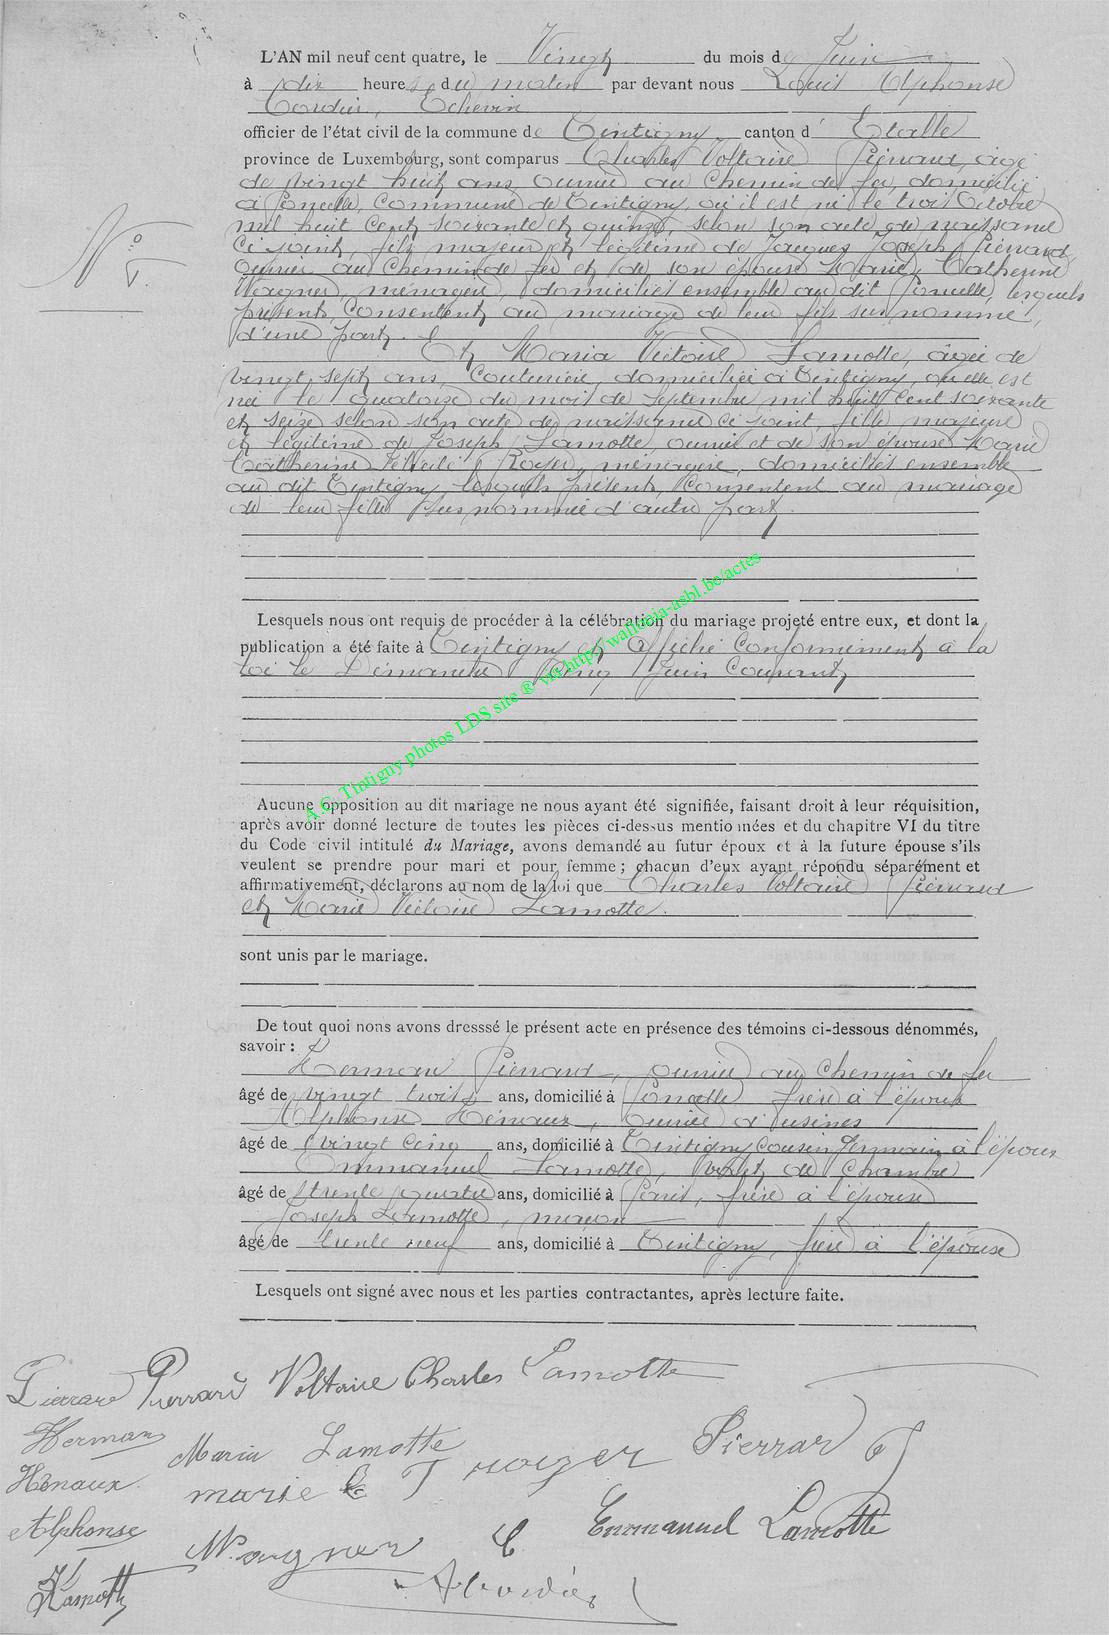 L'AN mil neuf cent quatre, le Vingt du mois de Juin
à dix heures du matin par devant nous Louis Alphonse
Cordier, Echevin
officier de l'état civil de la commune de Tintigny canton d' Etalle
province de Luxembourg, sont comparus Charles Voltaire Pierrard, âgé
de vingt huit ans, ouvrier au chemin de fer, domicilié
à Poncelle, commune de Tintigny, où il est né le trois Octobre
mil huit cent soixante et quinze, selon son acte de naissance
ci joint, fils majeur et légitime de Jacques Joseph Pierrard,
ouvrier au chemin de fer et de son épouse Marie Catherine
Wagner, ménagère, domiciliés ensemble au dit Poncelle, lesquels
présents, consentent au mariage de leur fils susnommé,
d'une part.
N° 5.
Et Maria Victoire Lamotte, âgée de
vingt sept ans, couturière, domiciliée à Tintigny, où elle est
née le quatorze du mois de Septembre mil huit cent soixante
et seize selon son acte de naissance ci joint, fille majeure
et légitime de Joseph Lamotte, ouvrier et de son épouse Marie
Catherine Roser, ménagère, domiciliés ensemble
au dit Tintigny lesquels présents, consentent au mariage
de leur fille susnommée d'autre part.
Lesquels nous ont requis de procéder à la célébration du mariage projeté entre eux, et dont la
publication a été faite à Tintigny et affiché conformément à la
loi le Dimanche cinq Juin courant
A.C. Tintigny photos LDS site ® via http://wallonia-asbl.be/actes
Aucune opposition au dit mariage ne nous ayant été signifiée, faisant droit à leur réquisition,
après avoir donné lecture de toutes les pièces ci-dessus mentionnées et du chapitre VI du titre
du Code civil intitulé du Mariage, avons demandé au futur époux et à la future épouse s'ils
veulent se prendre pour mari et pour femme ; chacun d'eux ayant répondu séparément et
affirmativement, déclarons au nom de la loi que Charles Voltaire Pierrard
et Marie Victoire Lamotte.
sont unis par le mariage.
De tout quoi nons avons dresssé le présent acte en présence des témoins ci-dessous dénommés,
savoir :
Herman Pierrard, ouvrier au chemin de fer
âgé de vingt trois ans, domicilié à Poncelle frère à l'époux
Alphonse Hénaux, ouvrier d'usines
âgé de vingt cinq ans, domicilié à Tintigny cousin germain à l'époux
Emmanuel Lamotte, valet de chambre
âgé de trente quatre ans, domicilié à Paris, frère à l'épouse
Joseph Lamotte, maçon
âgé de trente neuf ans, domicilié à Tintigny, frère à l'épouse
Lesquels ont signé avec nous et les parties contractantes, après lecture faite.
Pierrard Pierrard Voltaire Charles Lamotte
Herman
Maria Lamotte Pierrard J
Hénaux
marie C
Alphonse
Wagner C Emmanuel Lamotte
J Lamotte
A Cordier